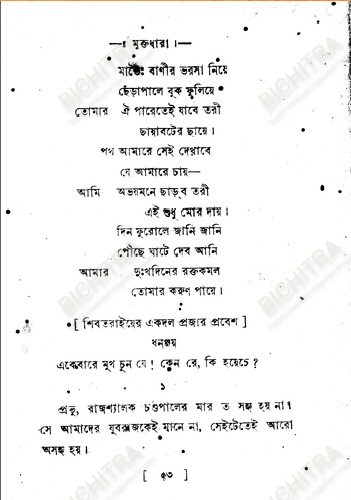 —। মুক্তধারা।—
মাভৈঃ বাণীর ভরসা নিয়ে
ছেঁড়াপালে বুক ফুলিয়ে
তোমার ঐ পারেতেই যাবে তরী
ছায়াবটের ছায়ে।
পথ আমারে সেই দেখাবে
যে আমারে চায়—
আমি অভয়মনে ছাড়ব তরী
এই শুধু মোর দায়।
দিন ফুরোলে জানি জানি
পৌঁছে ঘাটে দেব আনি
আমার দুঃখদিনের রক্তকমল
তোমার করুণ পায়ে।
[ শিবতরাইয়ের একদল প্রজার প্রবেশ ]
ধনঞ্জয়
একেবারে মুখ চুন যে! কেন রে, কি হয়েচে?
১
প্রভু, রাজশ্যালক চণ্ডপালের মার ত সহ্য হয় না।
সে আমাদের যুবরাজকেই মানে না, সেইটেতেই আরো
অসহ্য হয়।
[ ৫৩ ]
BICHITRA
BICHITRA
BICHITRA
BICHITRA
BICHITRA
BICHITRA